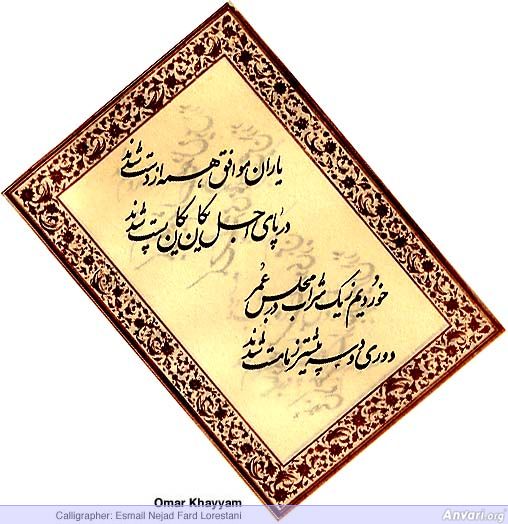 یاران موافق همه از دست شدند
در پای اجل یکان یکان پست شدند
خوردیم ز یک شراب در مجلس عمر
دوری دو سه پیشتر ز ما مست شدند
Omar Khayyam
Calligrapher: Esmail Nejad Fard Lorestani
Anvari.org